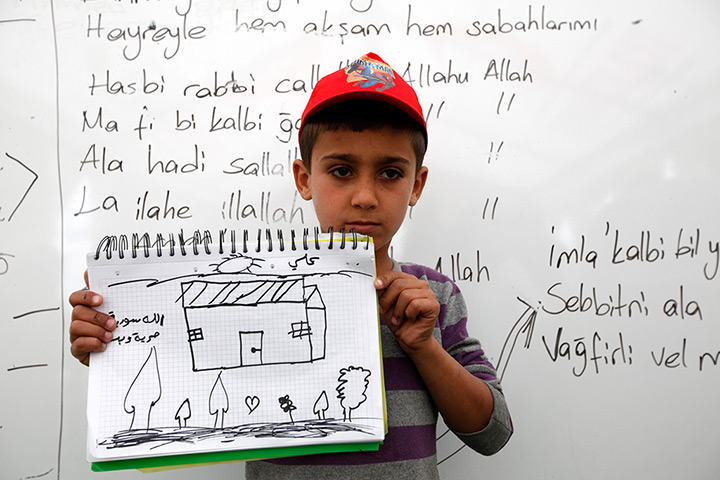 Hayreyle hem akşam hem sabahlarımı
Hasbi rabbi call Allahu Allah
Ma fi bi kalbi ğa " "
Ala hadi salla "
La ilahe illallah "
Allah
İmla' kalbi bil
Sebbitni ala
Vağfirli vel
الله سورية
حرية وبس